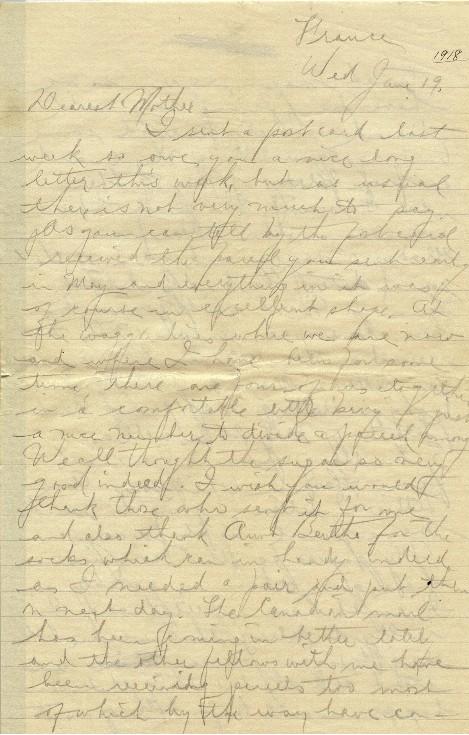 France
1918
Wed June 19.
Dearest Mother
I sent a postcard last
week so owe you a nice long
letter this week, but as usual
there is not very much to say.
As you can tell by the postcard
I received the parcel you sent early
in May and everything in it was
of course in excellent shape. At
the waggon lines where we are now
and where I have been for some
time there are four of us together
in a comfortable little bivy so just
a nice number to divide a parcel among
We all thought the sugar so very
good indeed. I wish you would
thank those who sent it for me
and also thank Aunt Bertha for the
socks which came in handy indeed
as I needed a pair and put them
on next day. The Canadian mail
has been coming in better lately
and the other fellows with me have
been receiving parcels too most
of which by the way have con-